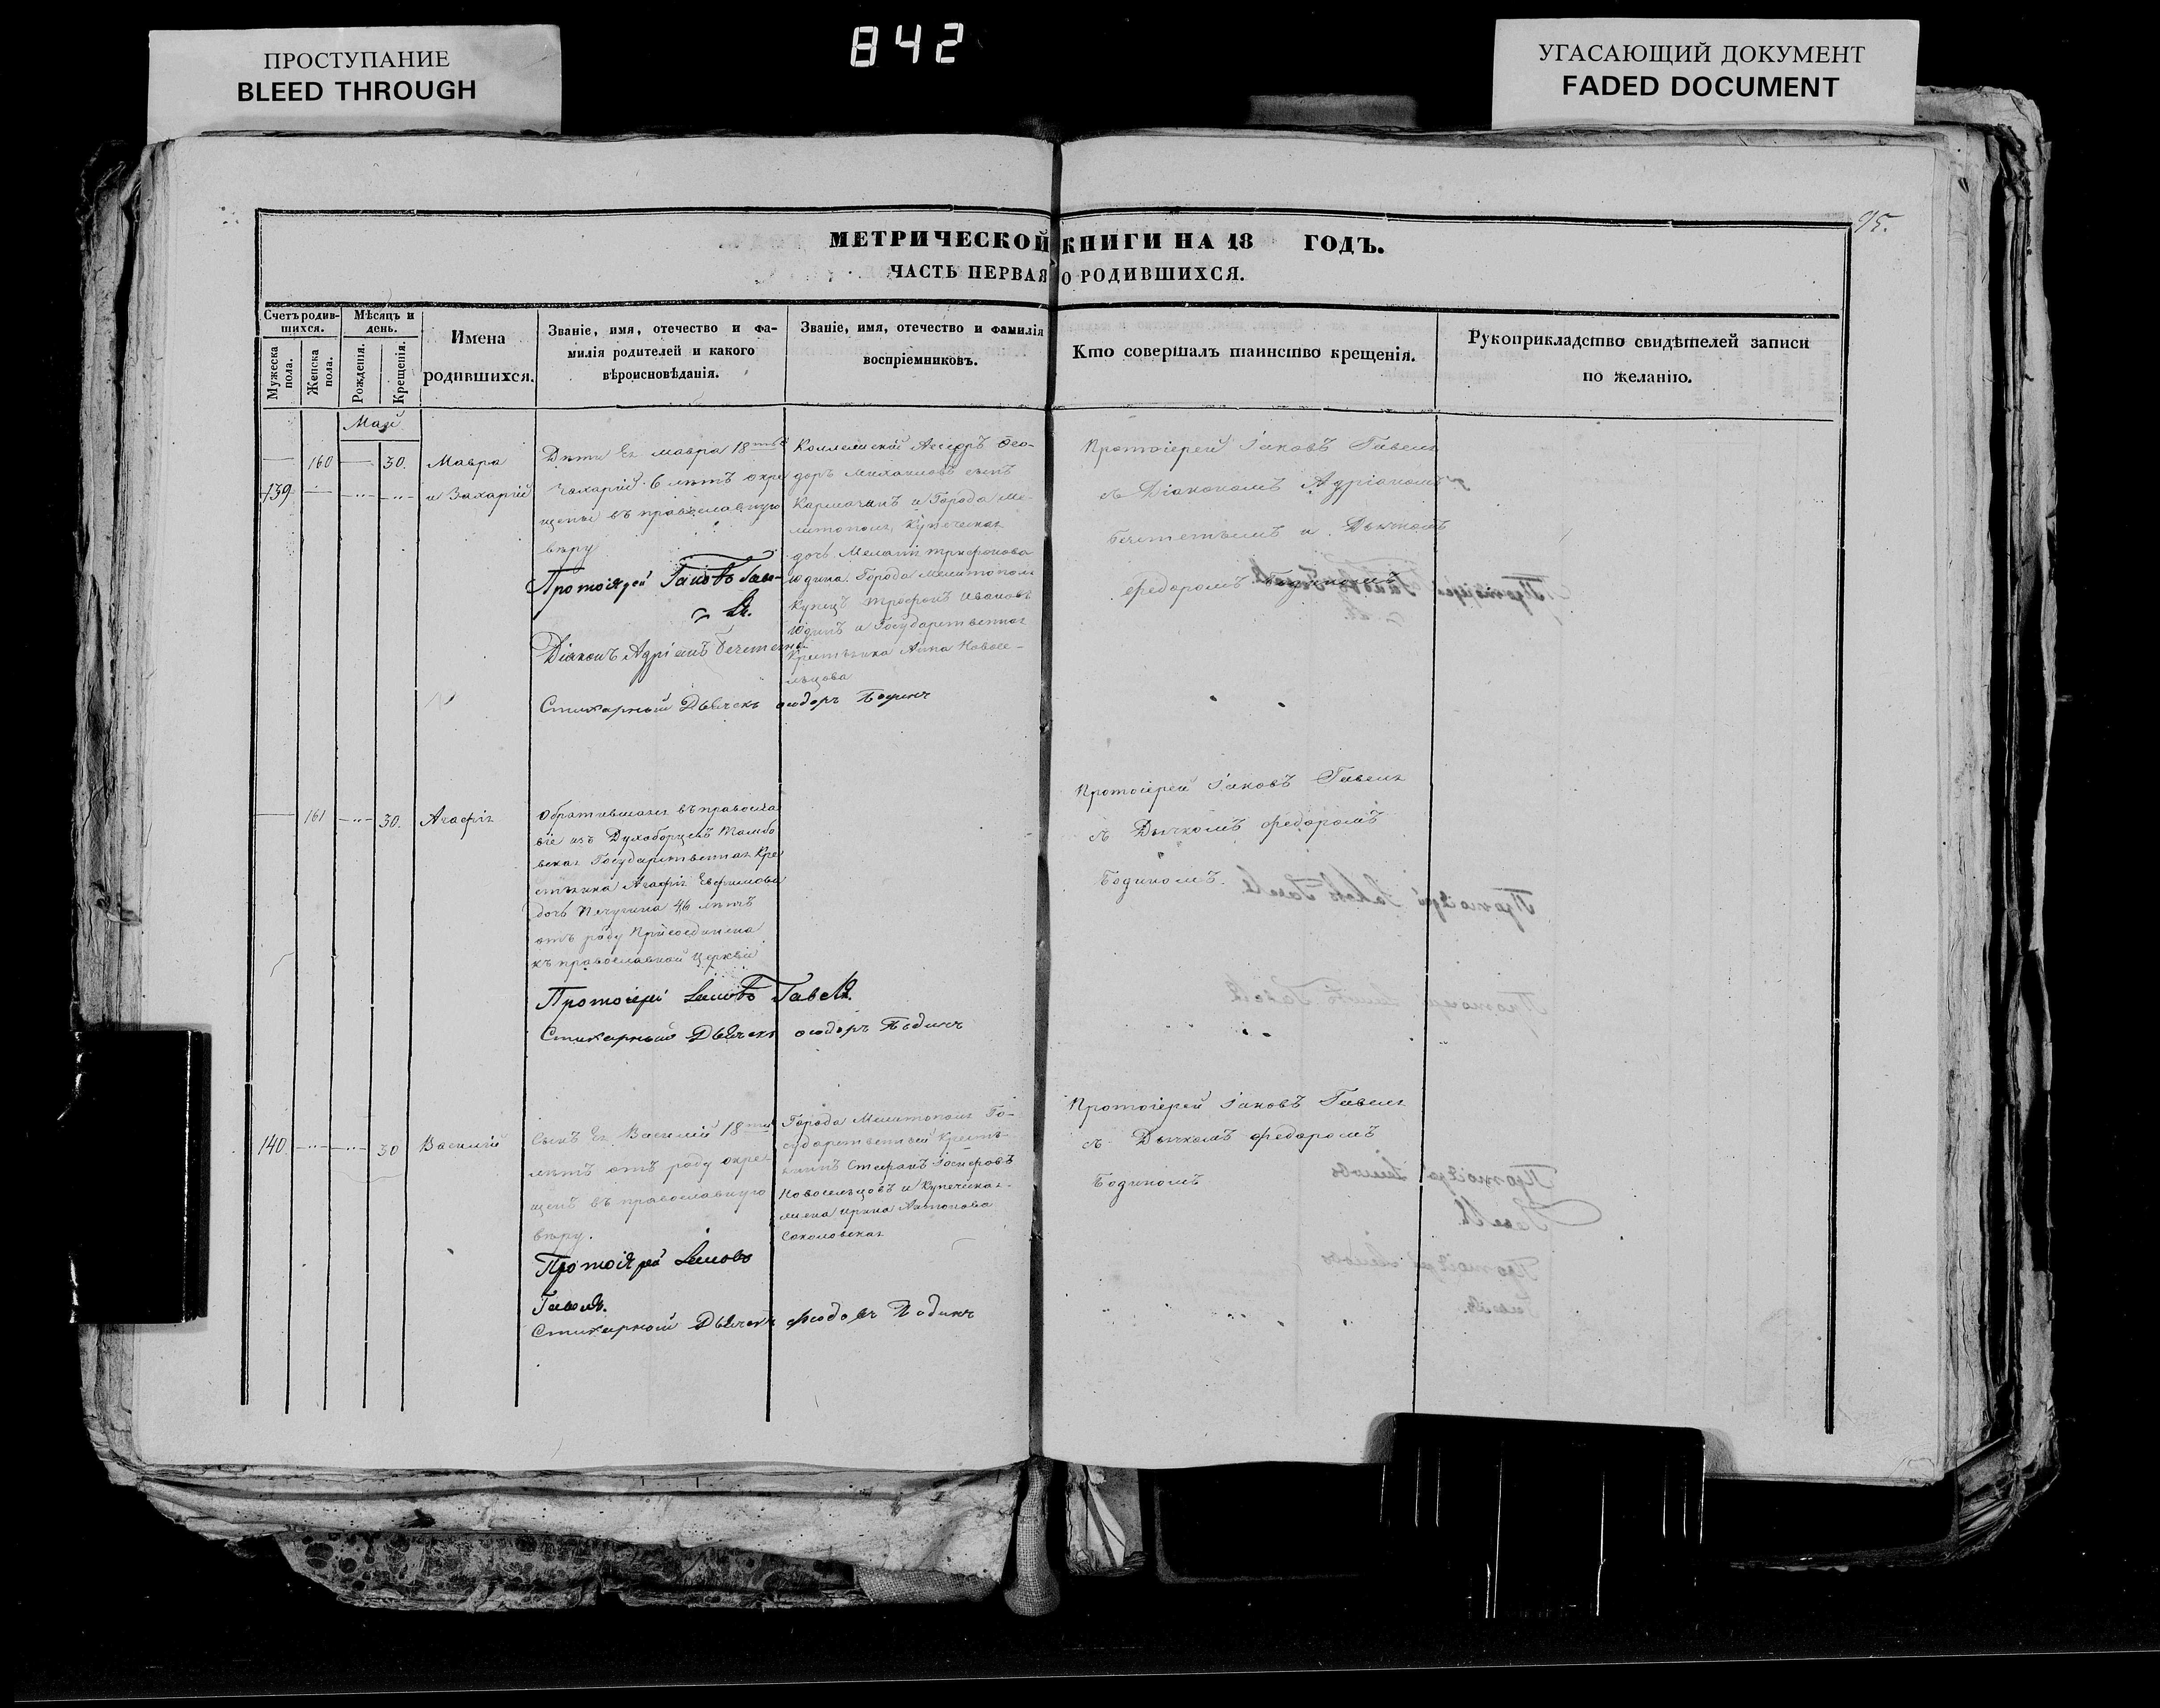 ПРОСТУПАНИЕ
BLEED THROUGH
842
УГАСАЮЩИЙ ДОКУМЕНТ
FADED DOCUMENT
95.
МЕТРИЧЕСКОЙ КНИГИ НА 18 ГОДЪ.
ЧАСТЬ ПЕРВАЯ О РОДИВШИХСЯ.
Счетъ родив-
шихся.
Мужеска
пола.
Женска
пола.
Мѣсяцъ и
день.
Рожденія.
Крещенія.
Имена
родившихся.
Званіе, имя, отечество и фа-
милія родителей и какого
вѣроисповѣданія.
Званіе, имя, отечество и фамилія
воспріемниковъ.
Кто совершалъ таинство крещенія.
Рукоприкладство свидѣтелей записи
по желанію.
Май
160 30.
139
Мавра
и Захарій
Дѣти Ея мавра 18
Захарій 6 лѣтъ окре
щены въ православную
вѣру
Протоіерей Іаковъ Гаве-
ля.
Діаконъ Адріанъ
Стихарный Дьячекъ Ѳеодоръ Бодинъ
Коллежскій Ассесоръ Ѳео-
доръ Михаиловъ сынъ
и Города Ме-
литополя Купеческая
дочь Меланія Трифонова
Юдина. Города Мелитополя
Купецъ Трофимъ Ивановъ
Юдинъ и Государственная
Крестьянка Анна Новосе-
льцова
Протоіерей Іаковъ Гавеля
съ Діакономъ Адріаномъ
и Дьячкомъ
Федоромъ Бодиномъ
161 30.
Агафія
Обратившаяся въ правосла
віе изъ Духоборцевъ Тамбо
вская Государственная Кре
стьянка Агафія Евфимова
дочь Пичугина 46 лѣтъ
отъ роду Присоединена
къ православной церкви
Протоіерей Іаковъ Гавеля.
Стихарный Дьячекъ Ѳеодоръ Бодинъ
Протоіерей Іаковъ Гавеля
съ Дьячкомъ Федоромъ
Бодиномъ.
140 30
Василій
Сынъ Ея Василій 18
лѣтъ отъ роду окре-
щенъ въ православную
вѣру.
Протоіерей Іаковъ
Гавеля.
Стихарный Дьячекъ Ѳеодоръ Бодинъ
Города Мелитополя Го-
сударственный Кресть-
янинъ Стефанъ Іосифовъ
Новосельцовъ и Купеческая
жена Ирина Антонова
Соколовская
Протоіерей Іаковъ Гавеля
съ Дьячкомъ Федоромъ
Бодиномъ